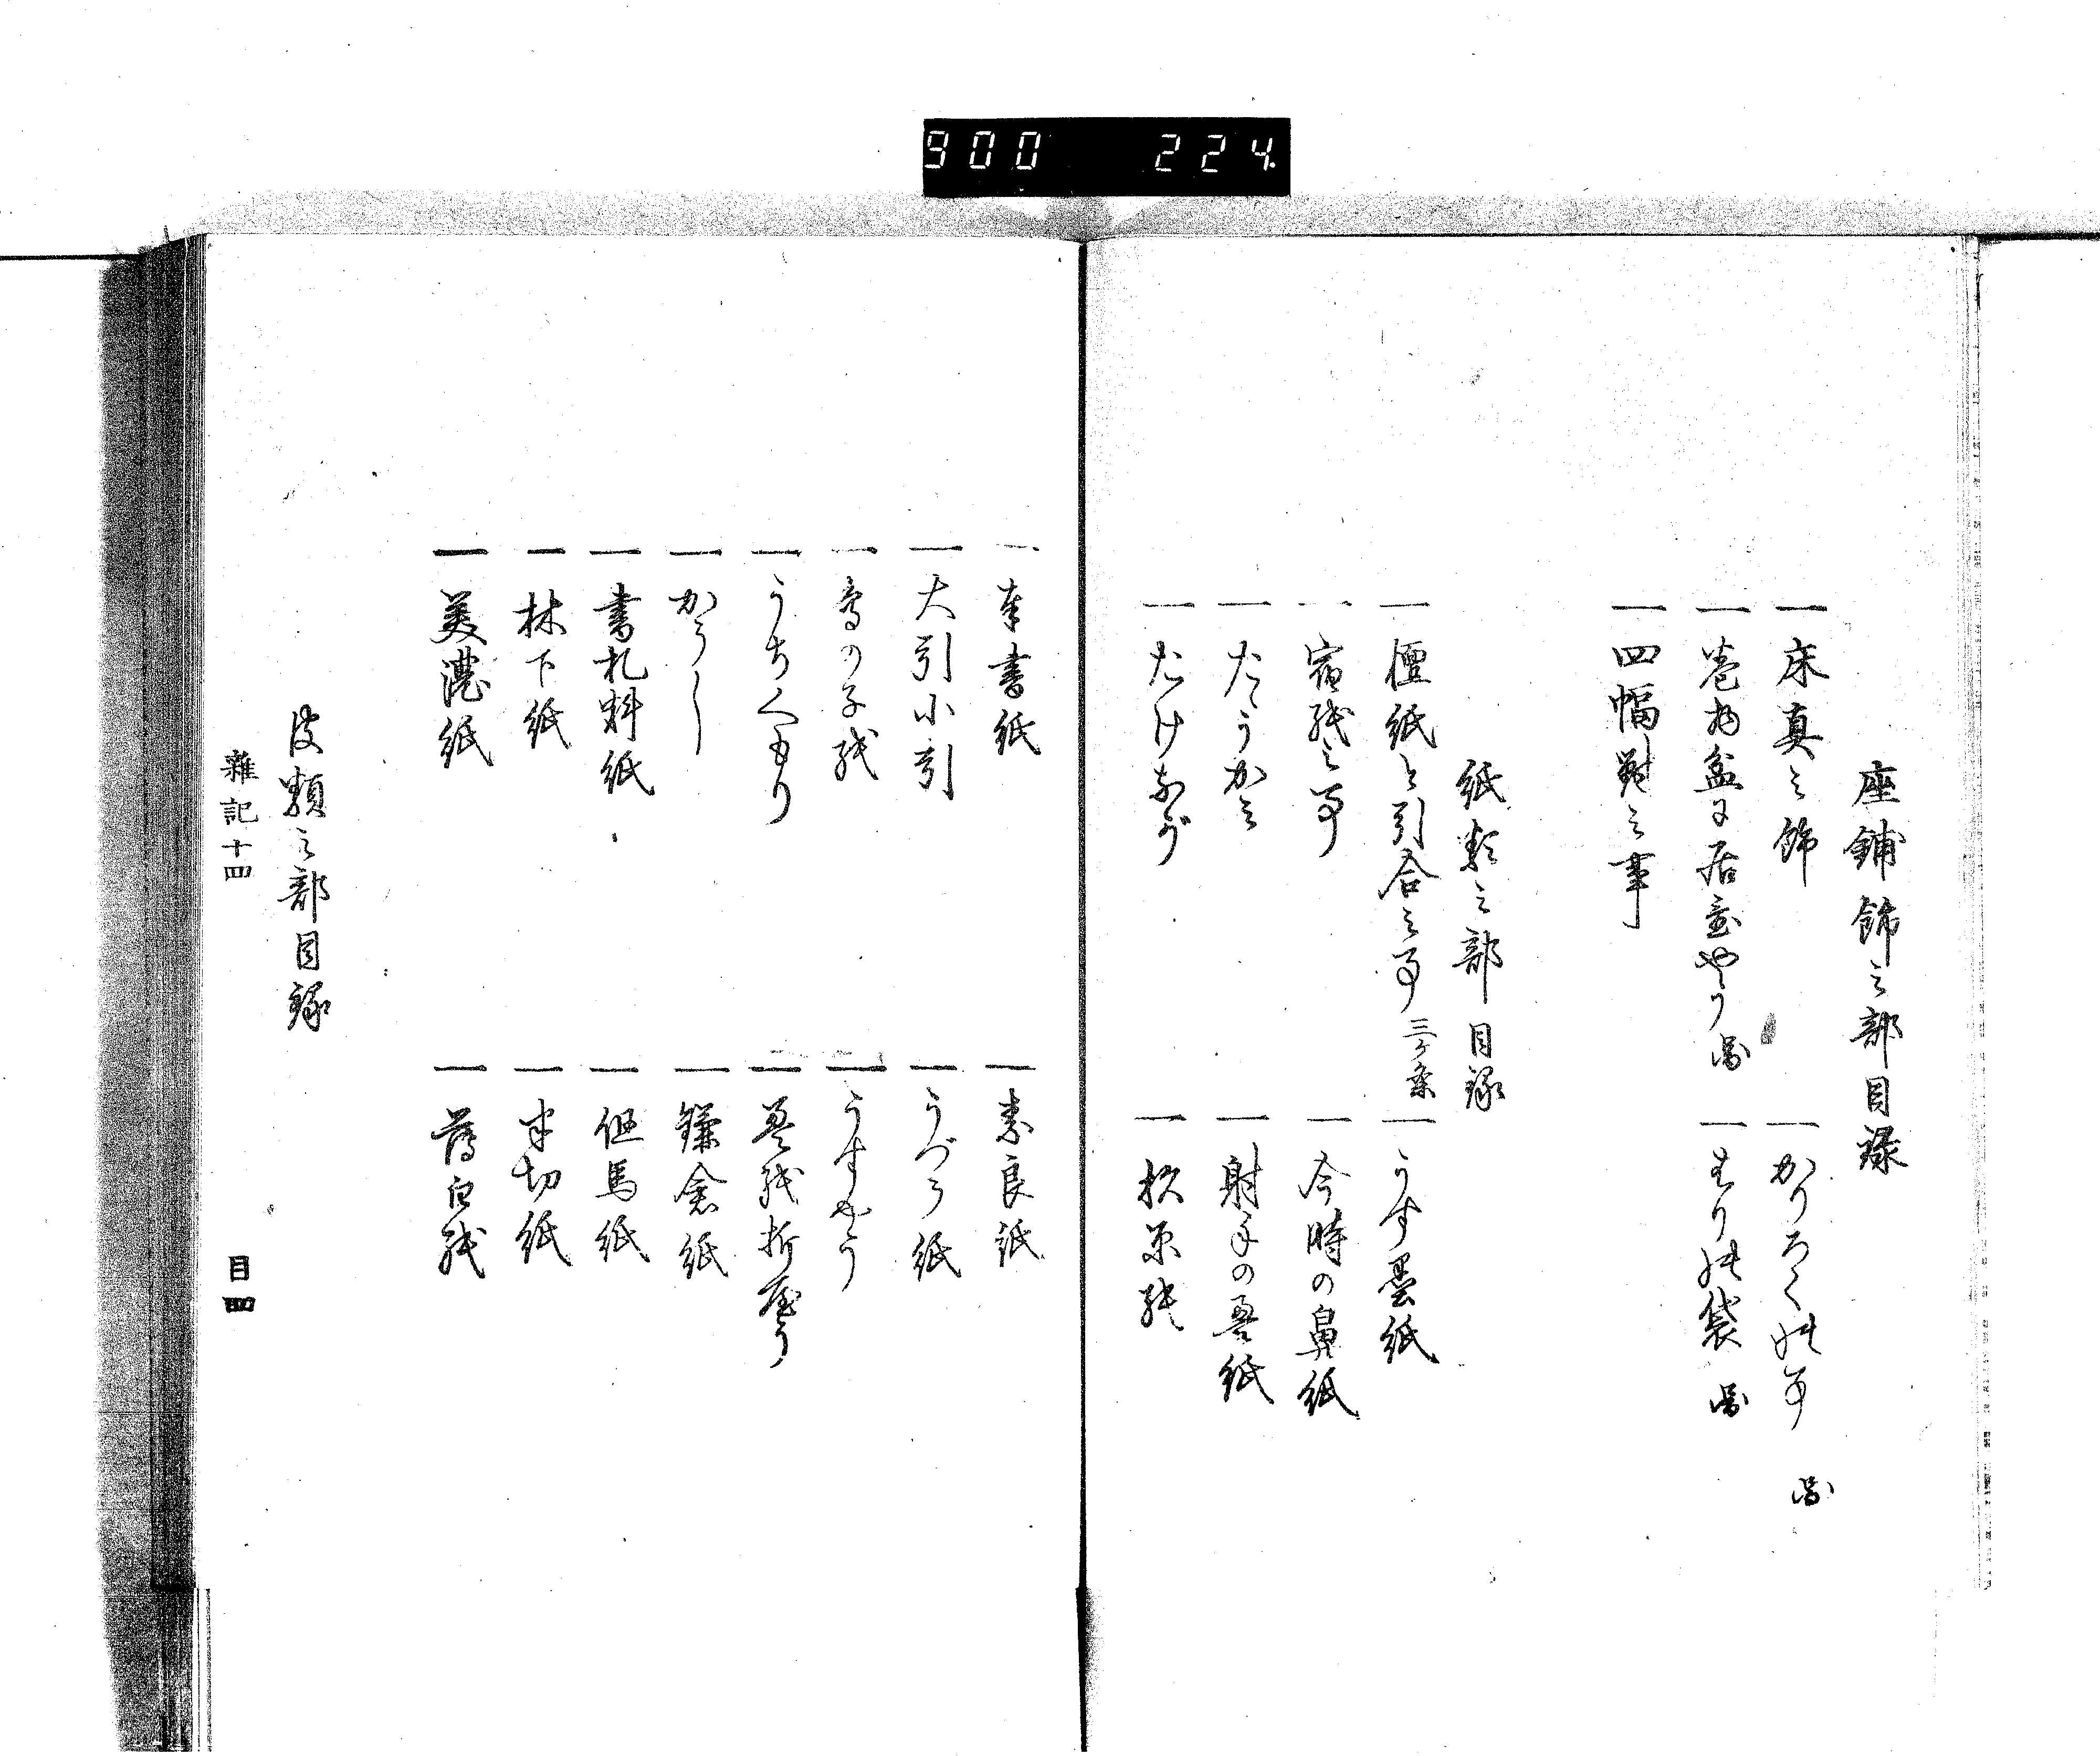 900 224
座鋪飾之部目録
一床真之飾
一かりろくの事 図
一巻物盆に居臺やう 図
一まりの袋 図
一四幅対之事
紙類之部 目録
一檀紙と引合之事 三ヶ条
一うす墨紙
一宿紙之事
一今時の鼻紙
一たゝうかミ
一射手の畳紙
一たけなが
一杉原紙
一奉書紙
一奈良紙
一大引小引
一うづら紙
一鳥の子紙
一うすやう
一うちくもり
一畳紙折やう
一かうし
一鎌倉紙
一書札料紙
一但馬紙
一林下紙
一半切紙
一美濃紙
一薄白紙
皮類之部目録
雑記十四
目四